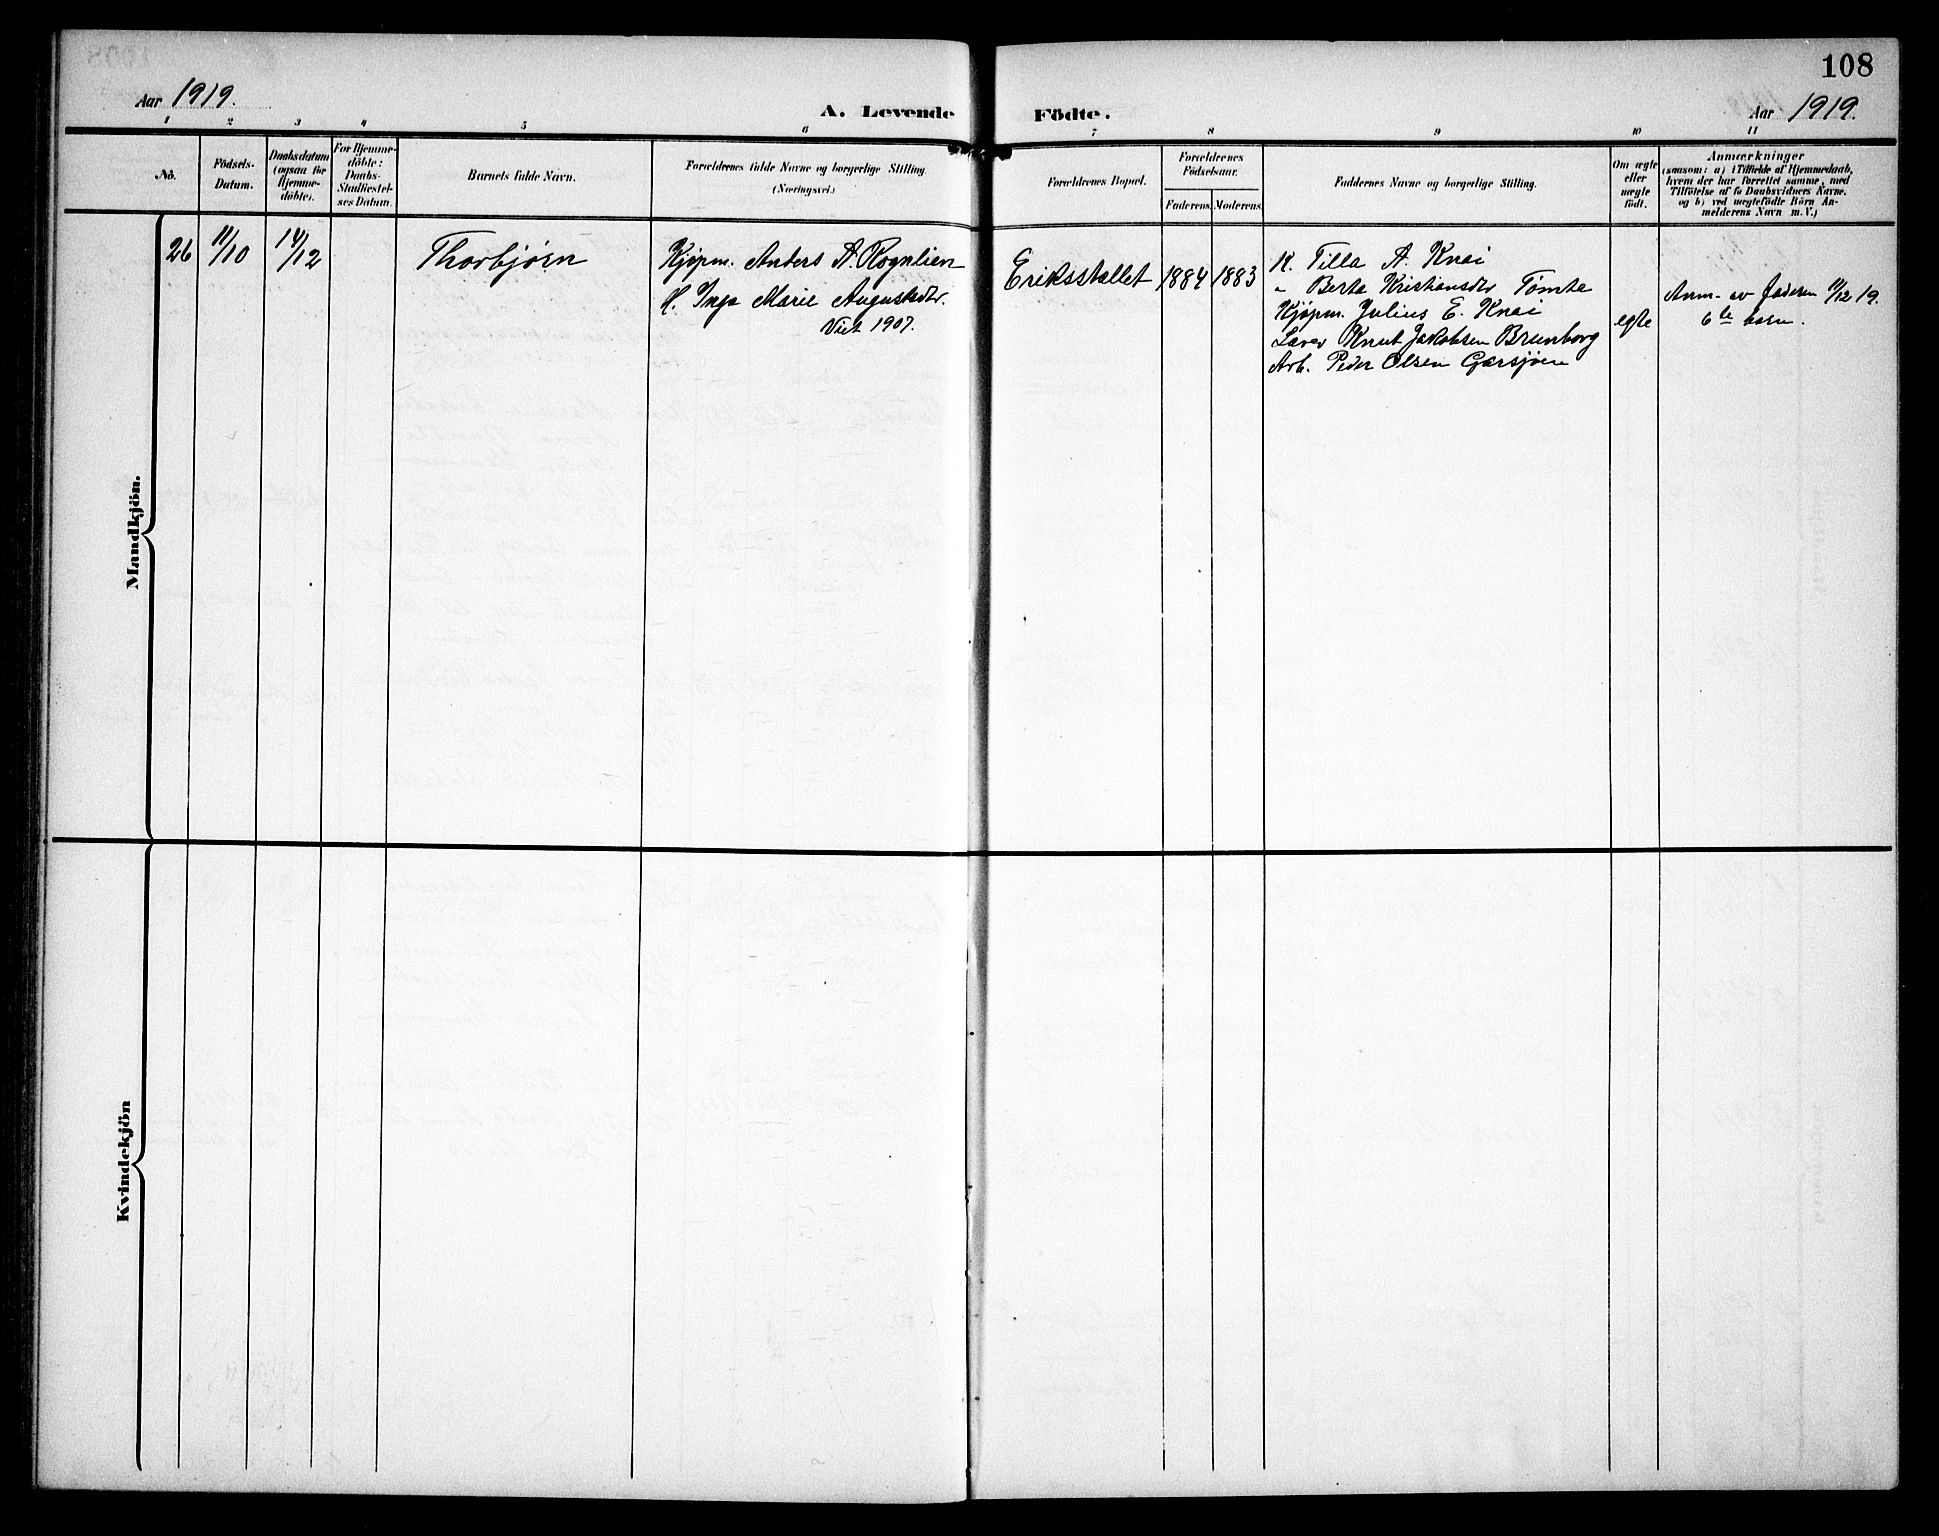 108
Aar 1919.
A. Levende Födte.
Aar 1919.
1 2 3 4 5 6 7 8 9 10 11
No.
Födsels-
Datum.
Daabsdatum
(ogsaa for
Hjemme-
döbte).
For Hjemme-
döbte:
Daabs-
Stadfæstel-
ses Datum.
Barnets fulde Navn.
Forældrenes fulde Navne og borgerlige Stilling
(Næringsvei.)
Forældrenes Bopæl.
Forældrenes
Födselsaar.
Faderens.
Moderens.
Faddernes Navne og borgerlige Stilling.
Om ægte
eller
uægte
födt.
Anmærkninger
(saasom: a) i Tilfælde af Hjemmedaab,
hvem der har forrettet samme, med
Tilföielse af to Daabsvidners Navne,
og b) ved uægtefödte Börn An-
melderens Navn m. V.)
Mandkjön.
26
11/10
14/12
Thorbjørn
Kjøpm. Anders A. Rognlien
H. Inga Marie Augustsdtr.
Viet 1907.
Eriksstallet
1884
1883
K. Tilla A. Knai
" Berta Kristiansdtr Tømte
Kjøpm. Julius E. Knai
Lærer Knut Jakobsen Brunborg
Arb. Peder Olsen Garsjøen
egte
Anm. av faderen 11/12 19.
6te barn.
Kvindekjön